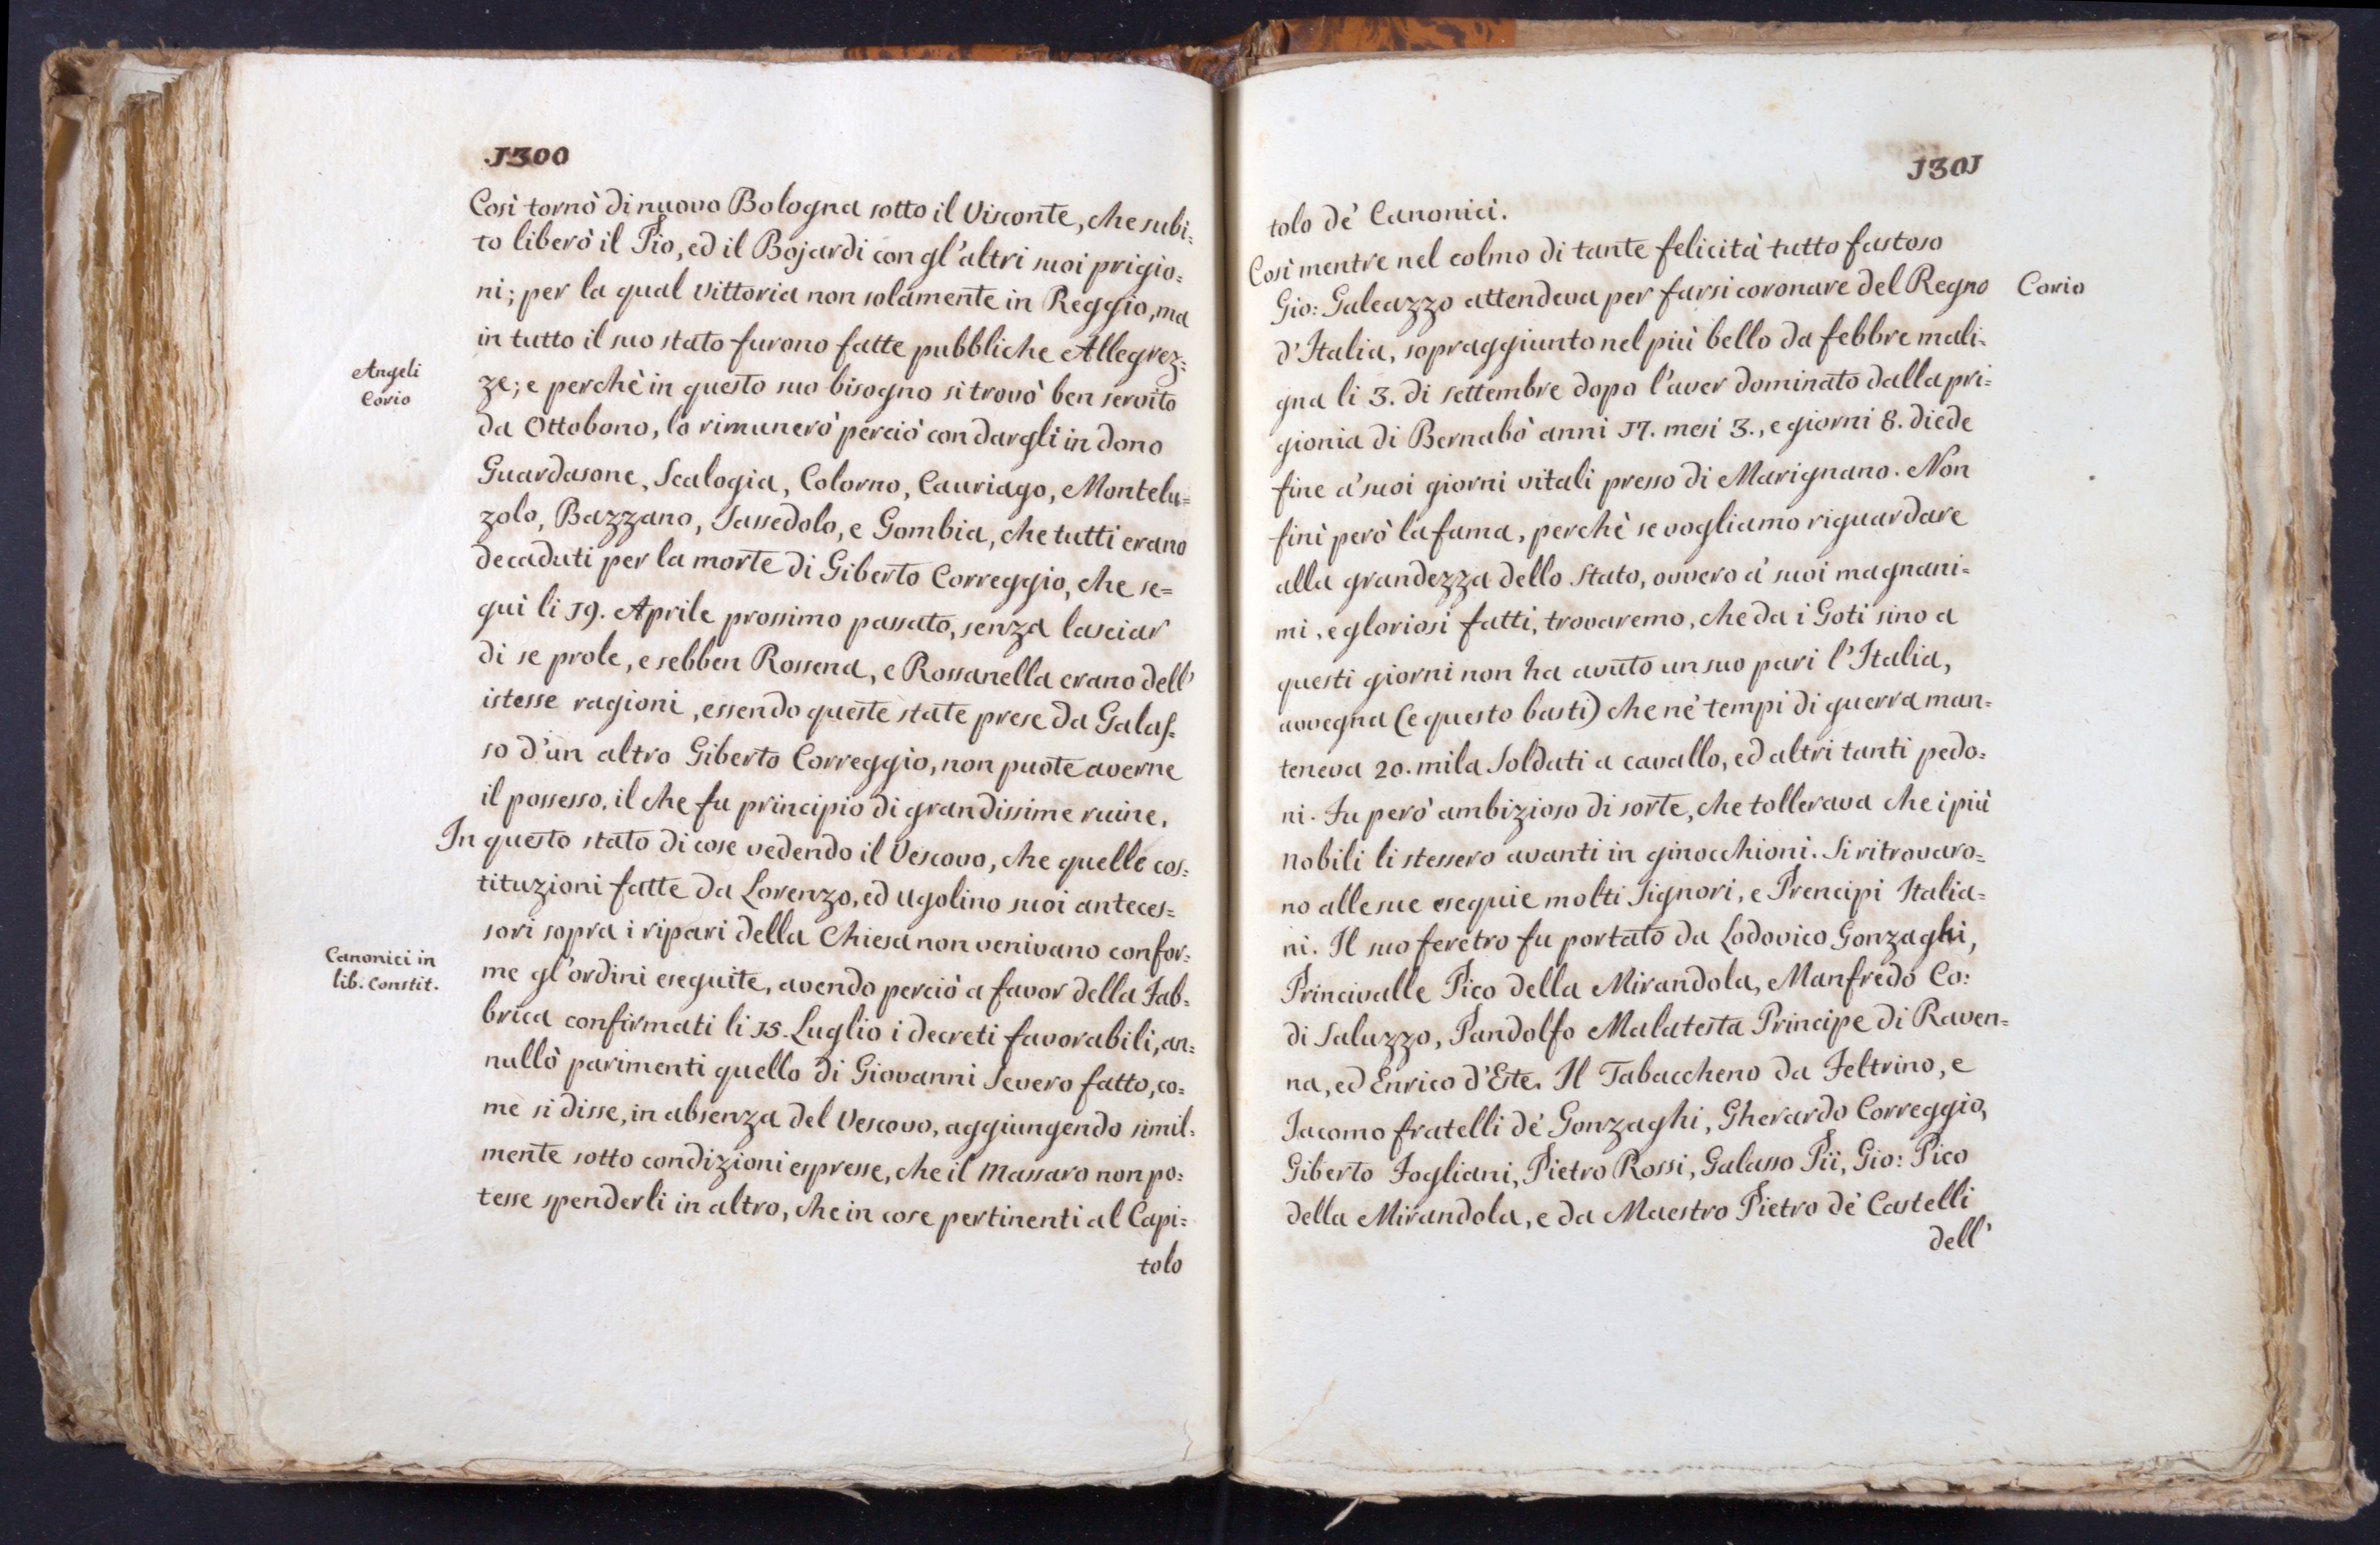 1300
Così tornò di nuovo Bologna sotto il Visconte, che subi=
to liberò il Pio, ed il Bojardi con gl'altri suoi prigio=
ni; per la qual vittoria non solamente in Reggio, ma
in tutto il suo stato furono fatte pubbliche Allegrez=
Angeli
Corio
ze; e perchè in questo suo bisogno si trovò ben servito
da Ottobono, lo rimunerò perciò con dargli in dono
Guardasone, Scalogia, Colorno, Cauriago, Montelu=
zolo, Bazzano, Sassedolo, e Gombia, che tutti erano
decaduti per la morte di Giberto Correggio, che se=
guì li 19. Aprile prossimo passato, senza lasciar
di se prole, e sebben Rossena, e Rossanella erano dell'
istesse ragioni, essendo queste state prese da Galas=
so d'un altro Giberto Correggio, non puote averne
il possesso. il che fu principio di grandissime ruine.
In questo stato di cose vedendo il Vescovo, che quelle cos=
tituzioni fatte da Lorenzo, ed Ugolino suoi anteces=
sori sopra i ripari della Chiesa non venivano confor=
Canonici in
lib. Constit.
me gl'ordini eseguite, avendo perciò a favor della Fab=
brica confirmati li 15. Luglio i decreti favorabili, an=
nullò parimenti quello di Giovanni Severo fatto, co=
me si disse, in absenza del Vescovo, aggiungendo simil=
mente sotto condizioni espresse, che il Massaro non po=
tesse spenderli in altro, che in cose pertinenti al Capi=
tolo
1301
tolo de' Canonici.
Così mentre nel colmo di tante felicità tutto fastoso
Gio: Galeazzo attendeva per farsi coronare del Regno
Corio
d'Italia, sopraggiunto nel più bello da febbre mali=
gna li 3. di settembre dopo l'aver dominato dalla pri=
gionia di Bernabò anni 17. mesi 3., e giorni 8. diede
fine a' suoi giorni vitali presso di Marignano. Non
finì però la fama, perchè se vogliamo riguardare
alla grandezza dello Stato, ovvero a' suoi magnani=
mi, e gloriosi fatti, trovaremo, che da i Goti sino a
questi giorni non ha avuto un suo pari l'Italia,
avvegna (e questo basti) che ne' tempi di guerra man=
teneva 20. mila Soldati a cavallo, ed altri tanti pedo=
ni. Fu però ambizioso di sorte, che tollerava che i più
Nobili li stessero avanti in ginocchioni. Si ritrovaro=
no alle sue esequie molti Signori, e Prencipi Italia=
ni. Il suo feretro fu portato da Lodovico Gonzaghi,
Princivalle Pico della Mirandola, Manfredo Co:
di Saluzzo, Pandolfo Malatesta Principe di Raven=
na, ed Enrico d'Este. Il Tabaccheno da Feltrino, e
Iacomo fratelli de' Gonzaghi, Gherardo Correggio,
Giberto Fogliani, Pietro Rossi, Galasso Pii, Gio: Pico
della Mirandola, e da Maestro Pietro de' Castelli
dell'